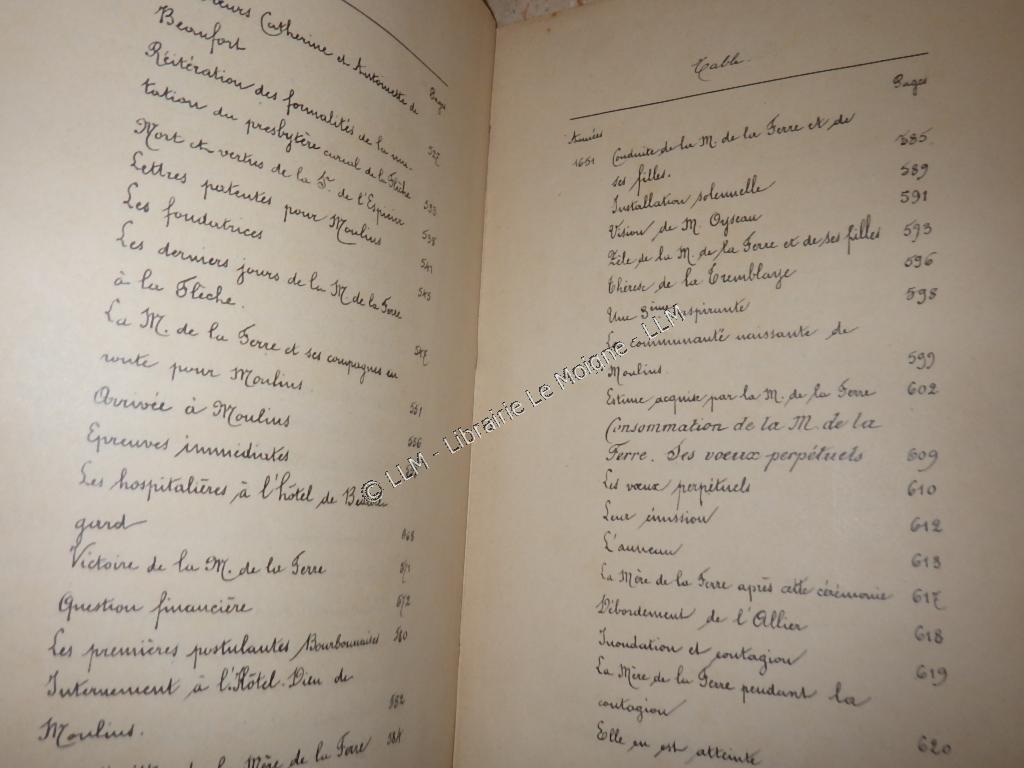 Sœurs Catherine et Antoinette de
Beaufort
Pages
Réitération des formalités de la mu-
tation du presbytère curial de la Flèche
Mort et vertus de la Sr. de l'Espicier
Lettres patentes pour Moulins
Les fondatrices 541
Les derniers jours de la M. de la Ferre
à la Flèche. 547
La M. de la Ferre et ses compagnes en
route pour Moulins. 551
Arrivée à Moulins 556
Epreuves immédiates
Les hospitalières à l'hôtel de Beaure-
gard
Victoire de la M. de la Ferre 571
Question financière 572
Les premières postulantes Bourbonnaises 580
Internement à l'Hôtel-Dieu de
Moulins. 582
de la Mère de la Ferre 584
Table.
Années
Pages
1651 Conduite de la M. de la Ferre et de
ses filles. 585
Installation solennelle 589
Vision de M. Oyseau 591
Zèle de la M. de la Ferre et de ses filles 593
Thérèse de la Tremblaye 596
Une 3ème aspirante 598
La communauté naissante de
Moulins. 599
Estime acquise par la M. de la Ferre 602
Consommation de la M. de la
Ferre. Ses vœux perpétuels 609
Les vœux perpétuels 610
Leur émission 612
L'anneau 613
La Mère de la Ferre après cette cérémonie 617
Débordement de l'Allier 618
Inondation et contagion 619
La Mère de la Ferre pendant la
contagion
Elle en est atteinte 620
© LLM - Librairie Le Moigne - LLM